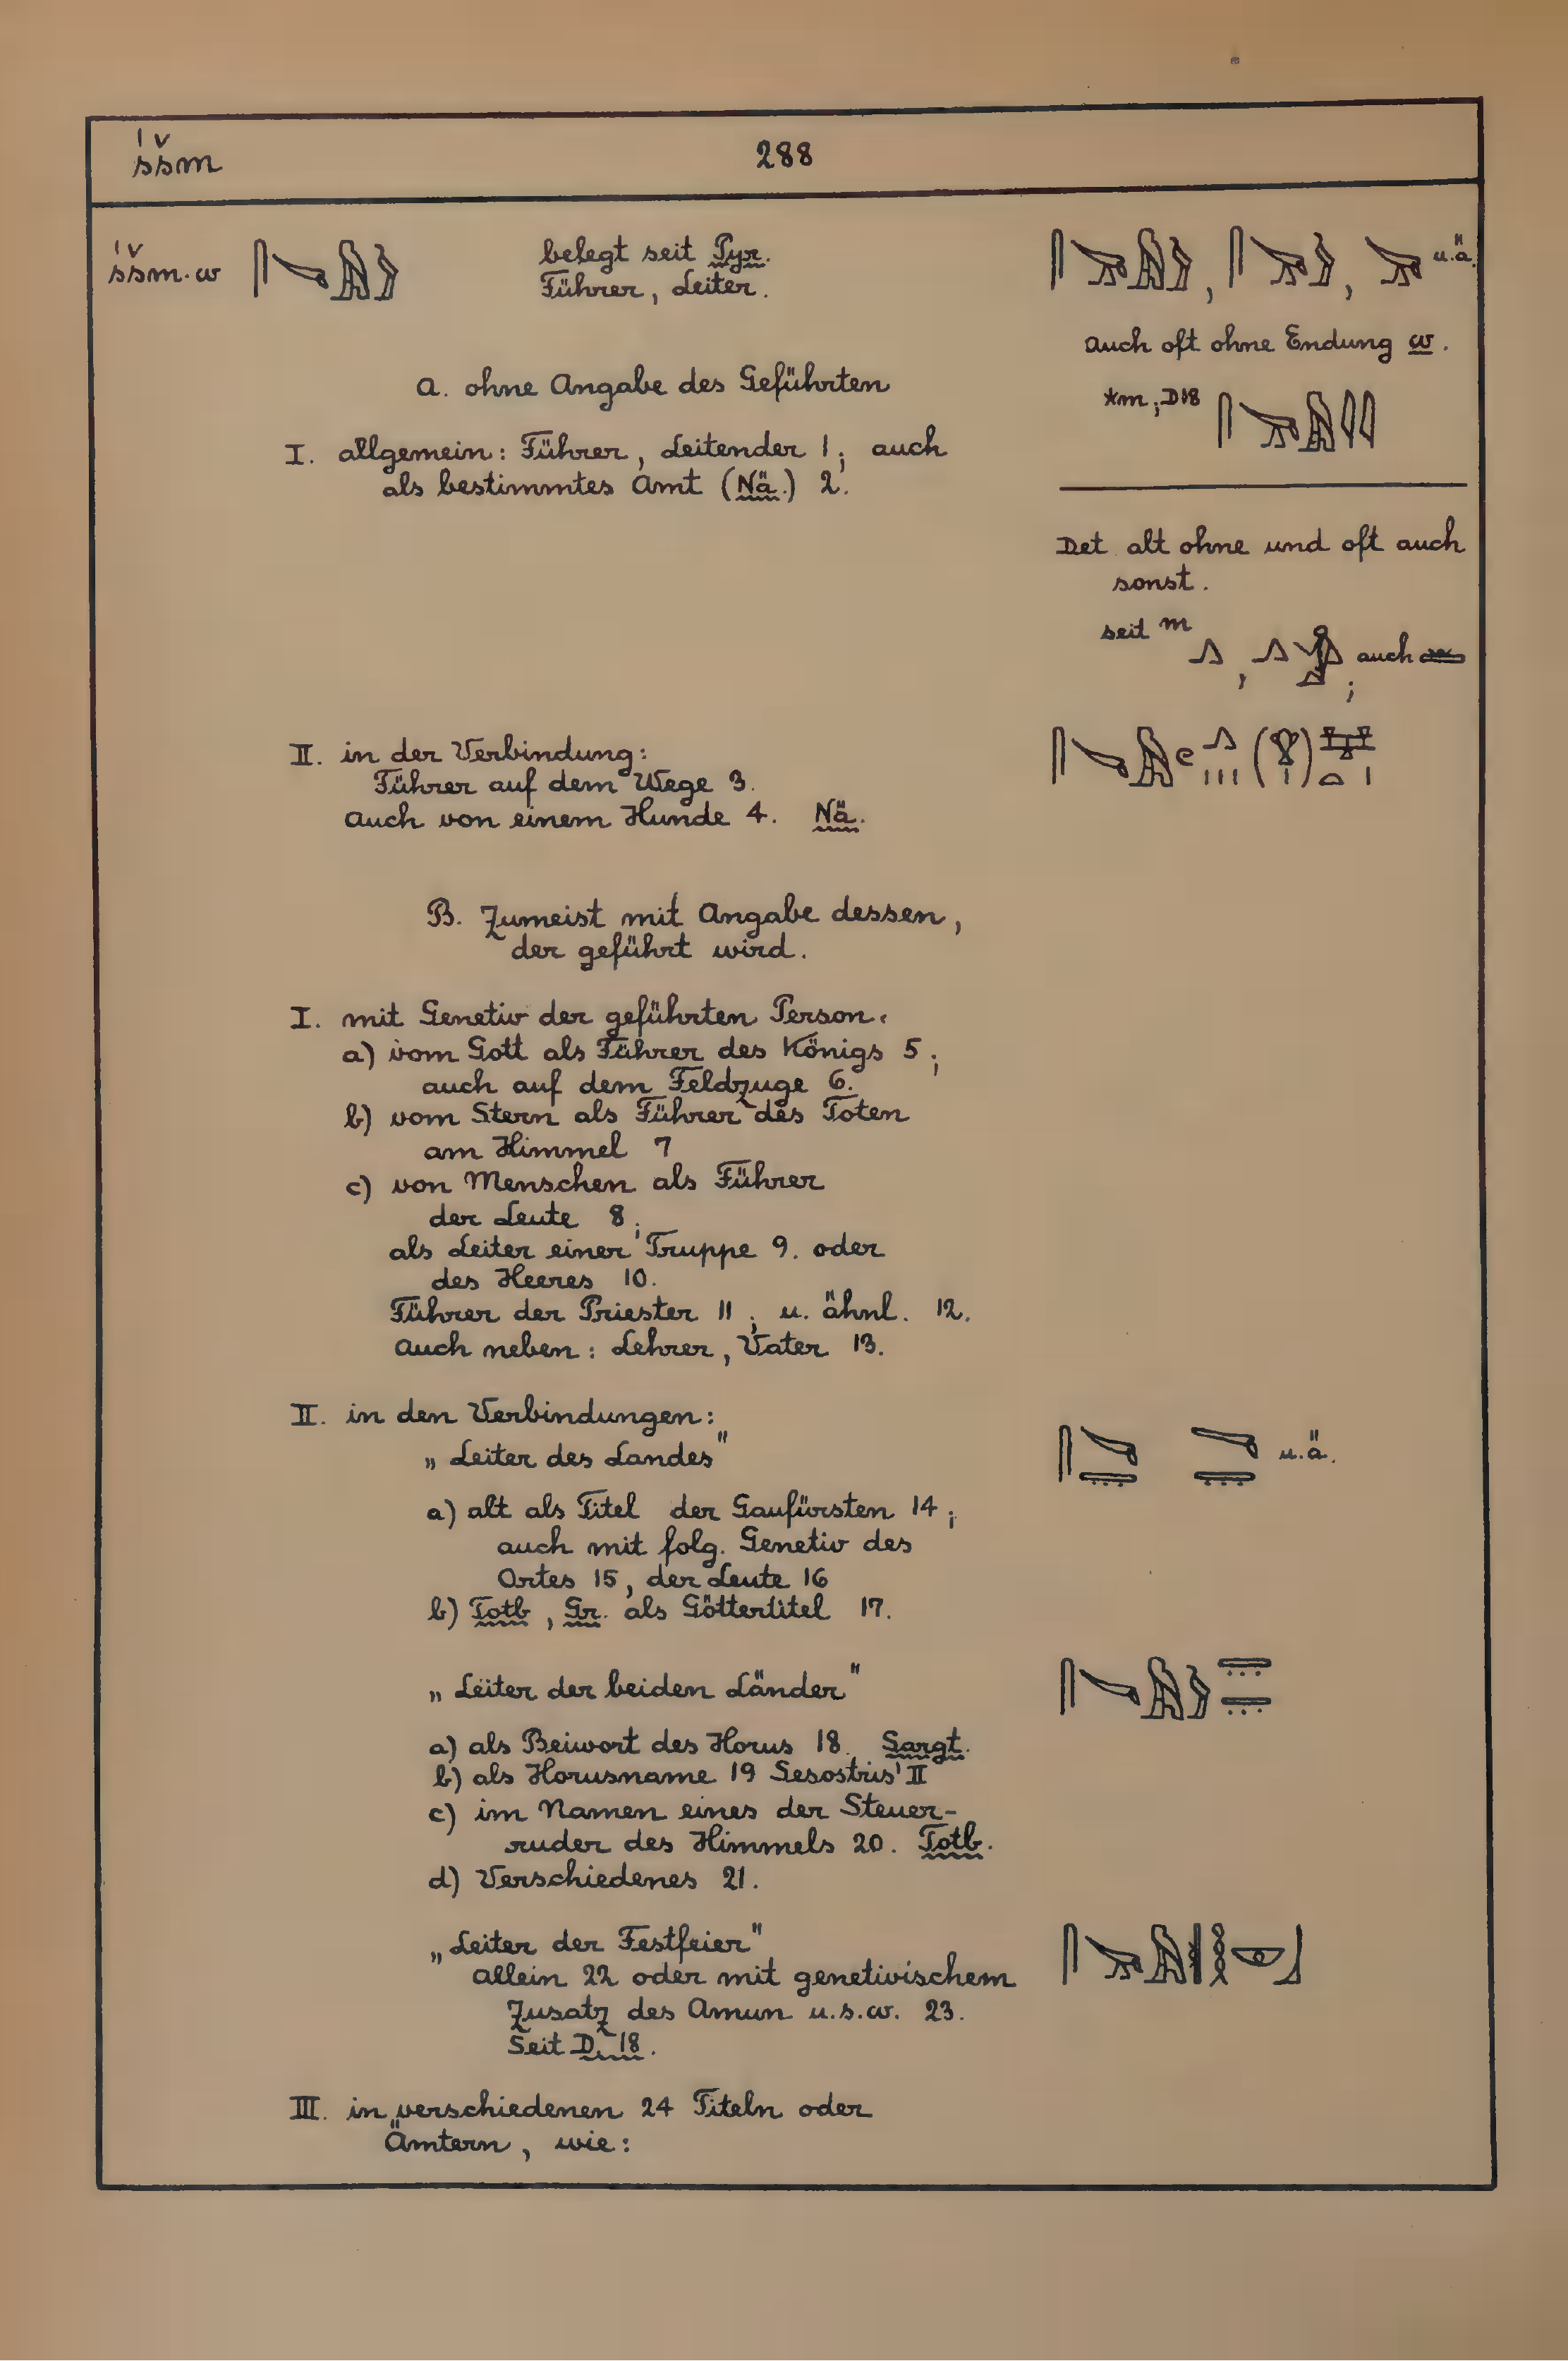 śšm 288
śšm.w 𓋴𓌫𓅓𓅱 belegt seit Pyr.
Führer, Leiter.
u.ä.
auch oft ohne Endung w.
*m; D18
A. ohne Angabe des Geführten
I. allgemein: Führer, Leitender 1; auch
als bestimmtes Amt (Nä.) 2.
Det. alt ohne und oft auch
sonst.
seit m
𓂻, 𓂻; auch
II. in der Verbindung:
Führer auf dem Wege 3.
auch von einem Hunde 4. Nä.
B. Zumeist mit Angabe dessen,
der geführt wird.
I. mit Genetiv der geführten Person.
a) vom Gott als Führer des Königs 5;
auch auf dem Feldzuge 6.
b) vom Stern als Führer des Toten
am Himmel 7
c) von Menschen als Führer
der Leute 8;
als Leiter einer Truppe 9. oder
des Heeres 10.
Führer der Priester 11; u. ähnl. 12.
Auch neben: Lehrer, Vater 13.
II. in den Verbindungen:
„Leiter des Landes" 𓋴𓌫𓇾 𓌫𓇾 u.ä.
a) alt als Titel der Gaufürsten 14;
auch mit folg. Genetiv des
Ortes 15, der Leute 16
b) Totb, Gr. als Göttertitel 17.
„Leiter der beiden Länder" 𓋴𓌫𓅓𓅱𓇾𓇾
a) als Beiwort des Horus 18. Sargt.
b) als Horusname 19 Sesostris' II
c) im Namen eines der Steuer-
ruder des Himmels 20. Totb.
d) Verschiedenes 21.
„Leiter der Festfeier"
allein 22 oder mit genetivischem
Zusatz des Amun u.s.w. 23.
Seit D. 18.
III. in verschiedenen 24 Titeln oder
Ämtern, wie: